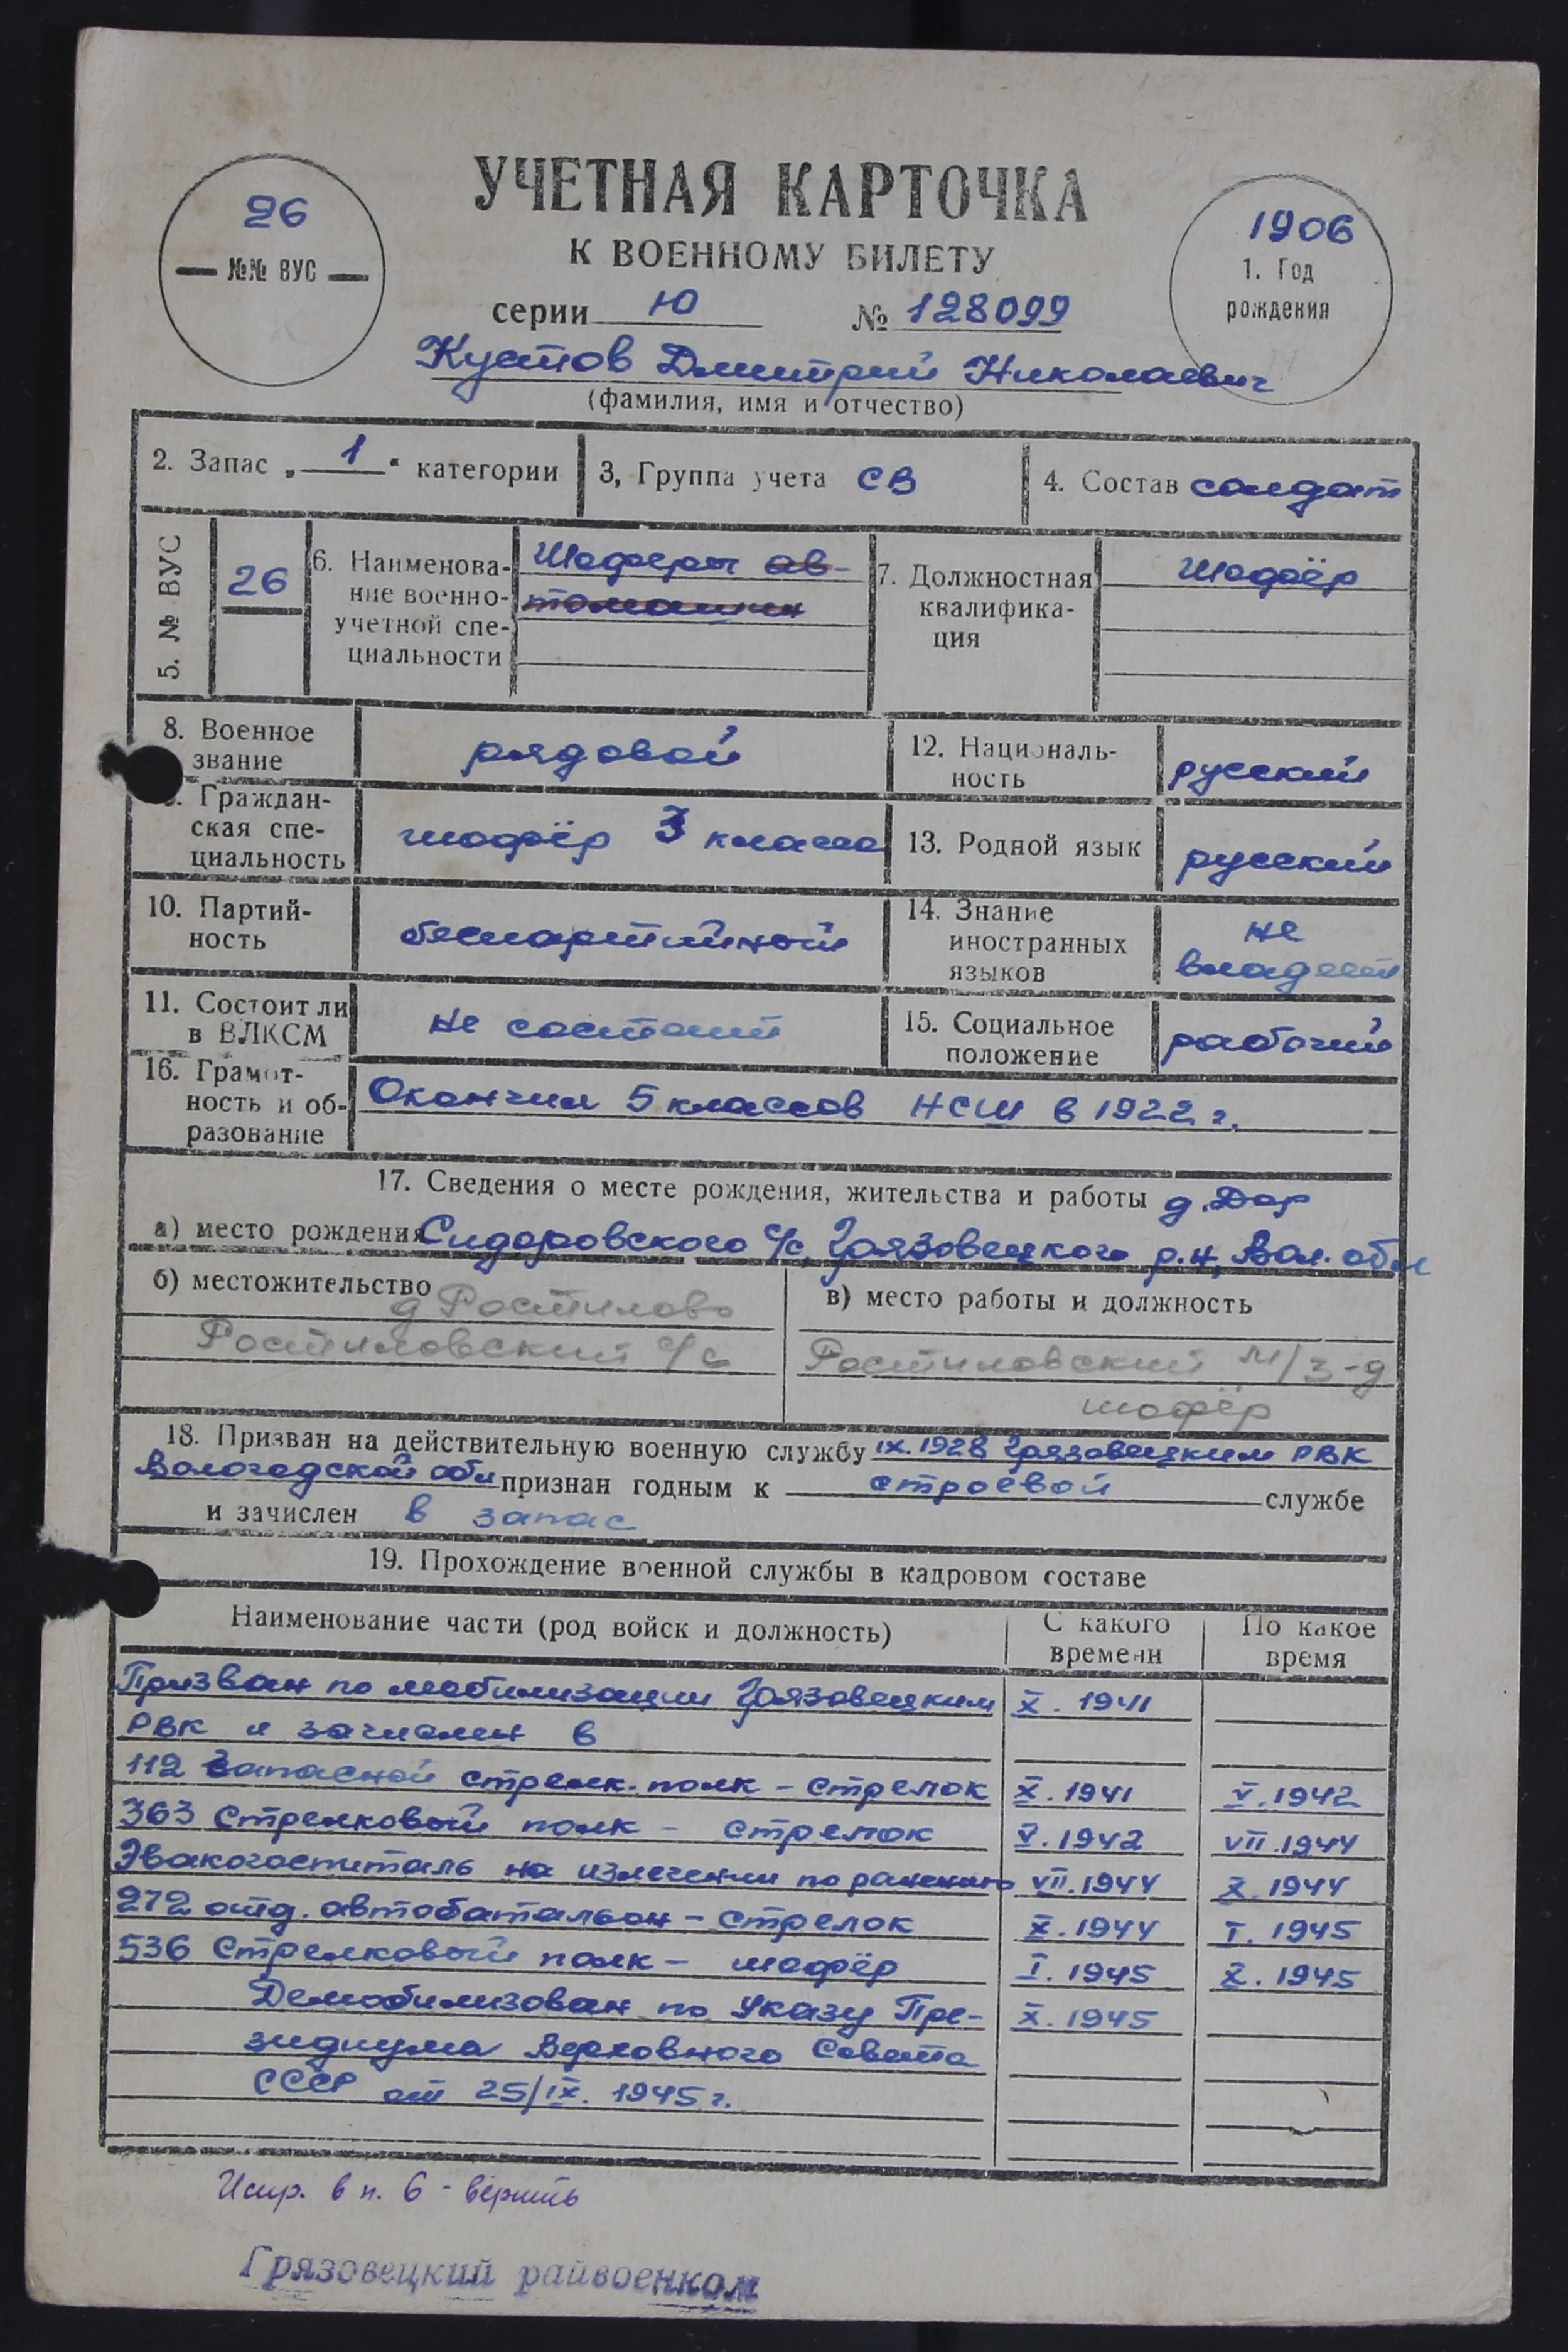 УЧЕТНАЯ КАРТОЧКА
К ВОЕННОМУ БИЛЕТУ
26
№№ ВУС
1906
1. Год
рождения
серии Ю № 128099
Кустов Дмитрий Николаевич
(фамилия, имя и отчество)
2. Запас „ 1 “ категории
3, Группа учета СВ
4. Состав солдат
5. № ВУС
26
6. Наименова-
ние военно-
учетной спе-
циальности
Шоферы ав-
томашин
7. Должностная
квалифика-
ция
Шофёр
8. Военное
звание
рядовой
12. Националь-
ность
русский
Граждан-
ская спе-
циальность
шофёр 3 класса
13. Родной язык
русский
10. Партий-
ность
беспартийный
14. Знание
иностранных
языков
не
владеет
11. Состоит ли
в ВЛКСМ
не состоит
15. Социальное
положение
рабочий
16. Грамот-
ность и об-
разование
Окончил 5 классов НСШ в 1922 г.
17. Сведения о месте рождения, жительства и работы д. Дор
а) место рождения Сидоровского с/с, Грязовецкого р.н, Вол. обл
б) местожительство
д Ростилово
Ростиловский с/с
в) место работы и должность
Ростиловский м/з-д
шофёр
18. Призван на действительную военную службу IX.1928 Грязовецким РВК
Вологодской обл признан годным к строевой службе
и зачислен в запас
19. Прохождение военной службы в кадровом составе
Наименование части (род войск и должность)
С какого
времени
По какое
время
Призван по мобилизации Грязовецким X. 1941
РВК и зачислен в
112 Запасной стрелк. полк - стрелок X. 1941 V. 1942
363 Стрелковый полк - стрелок V. 1942 VII. 1944
Эвакогоспиталь на излечении по ранению VII. 1944 X. 1944
272 отд. автобатальон - стрелок X. 1944 I. 1945
536 Стрелковый полк - шофёр I. 1945 X. 1945
Демобилизован по Указу Пре- X. 1945
зидиума Верховного Совета
СССР от 25/IX. 1945 г.
Испр. в п. 6 - верить
Грязовецкий райвоенком